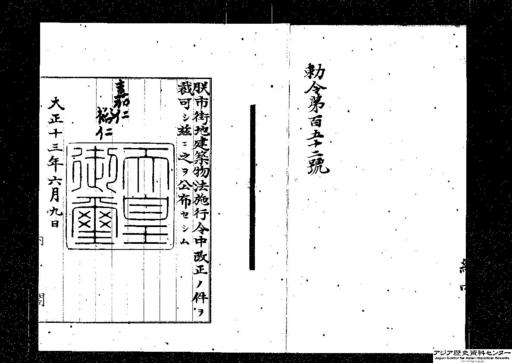 勅令第百五十二號
朕市街地建築物法施行令中改正ノ件ヲ
裁可シ茲ニ之ヲ公布セシム
嘉仁
裕仁
天皇
御璽
大正十三年六月九日
内閣
アジア歴史資料センター
Japan Center for Asian Historical Records